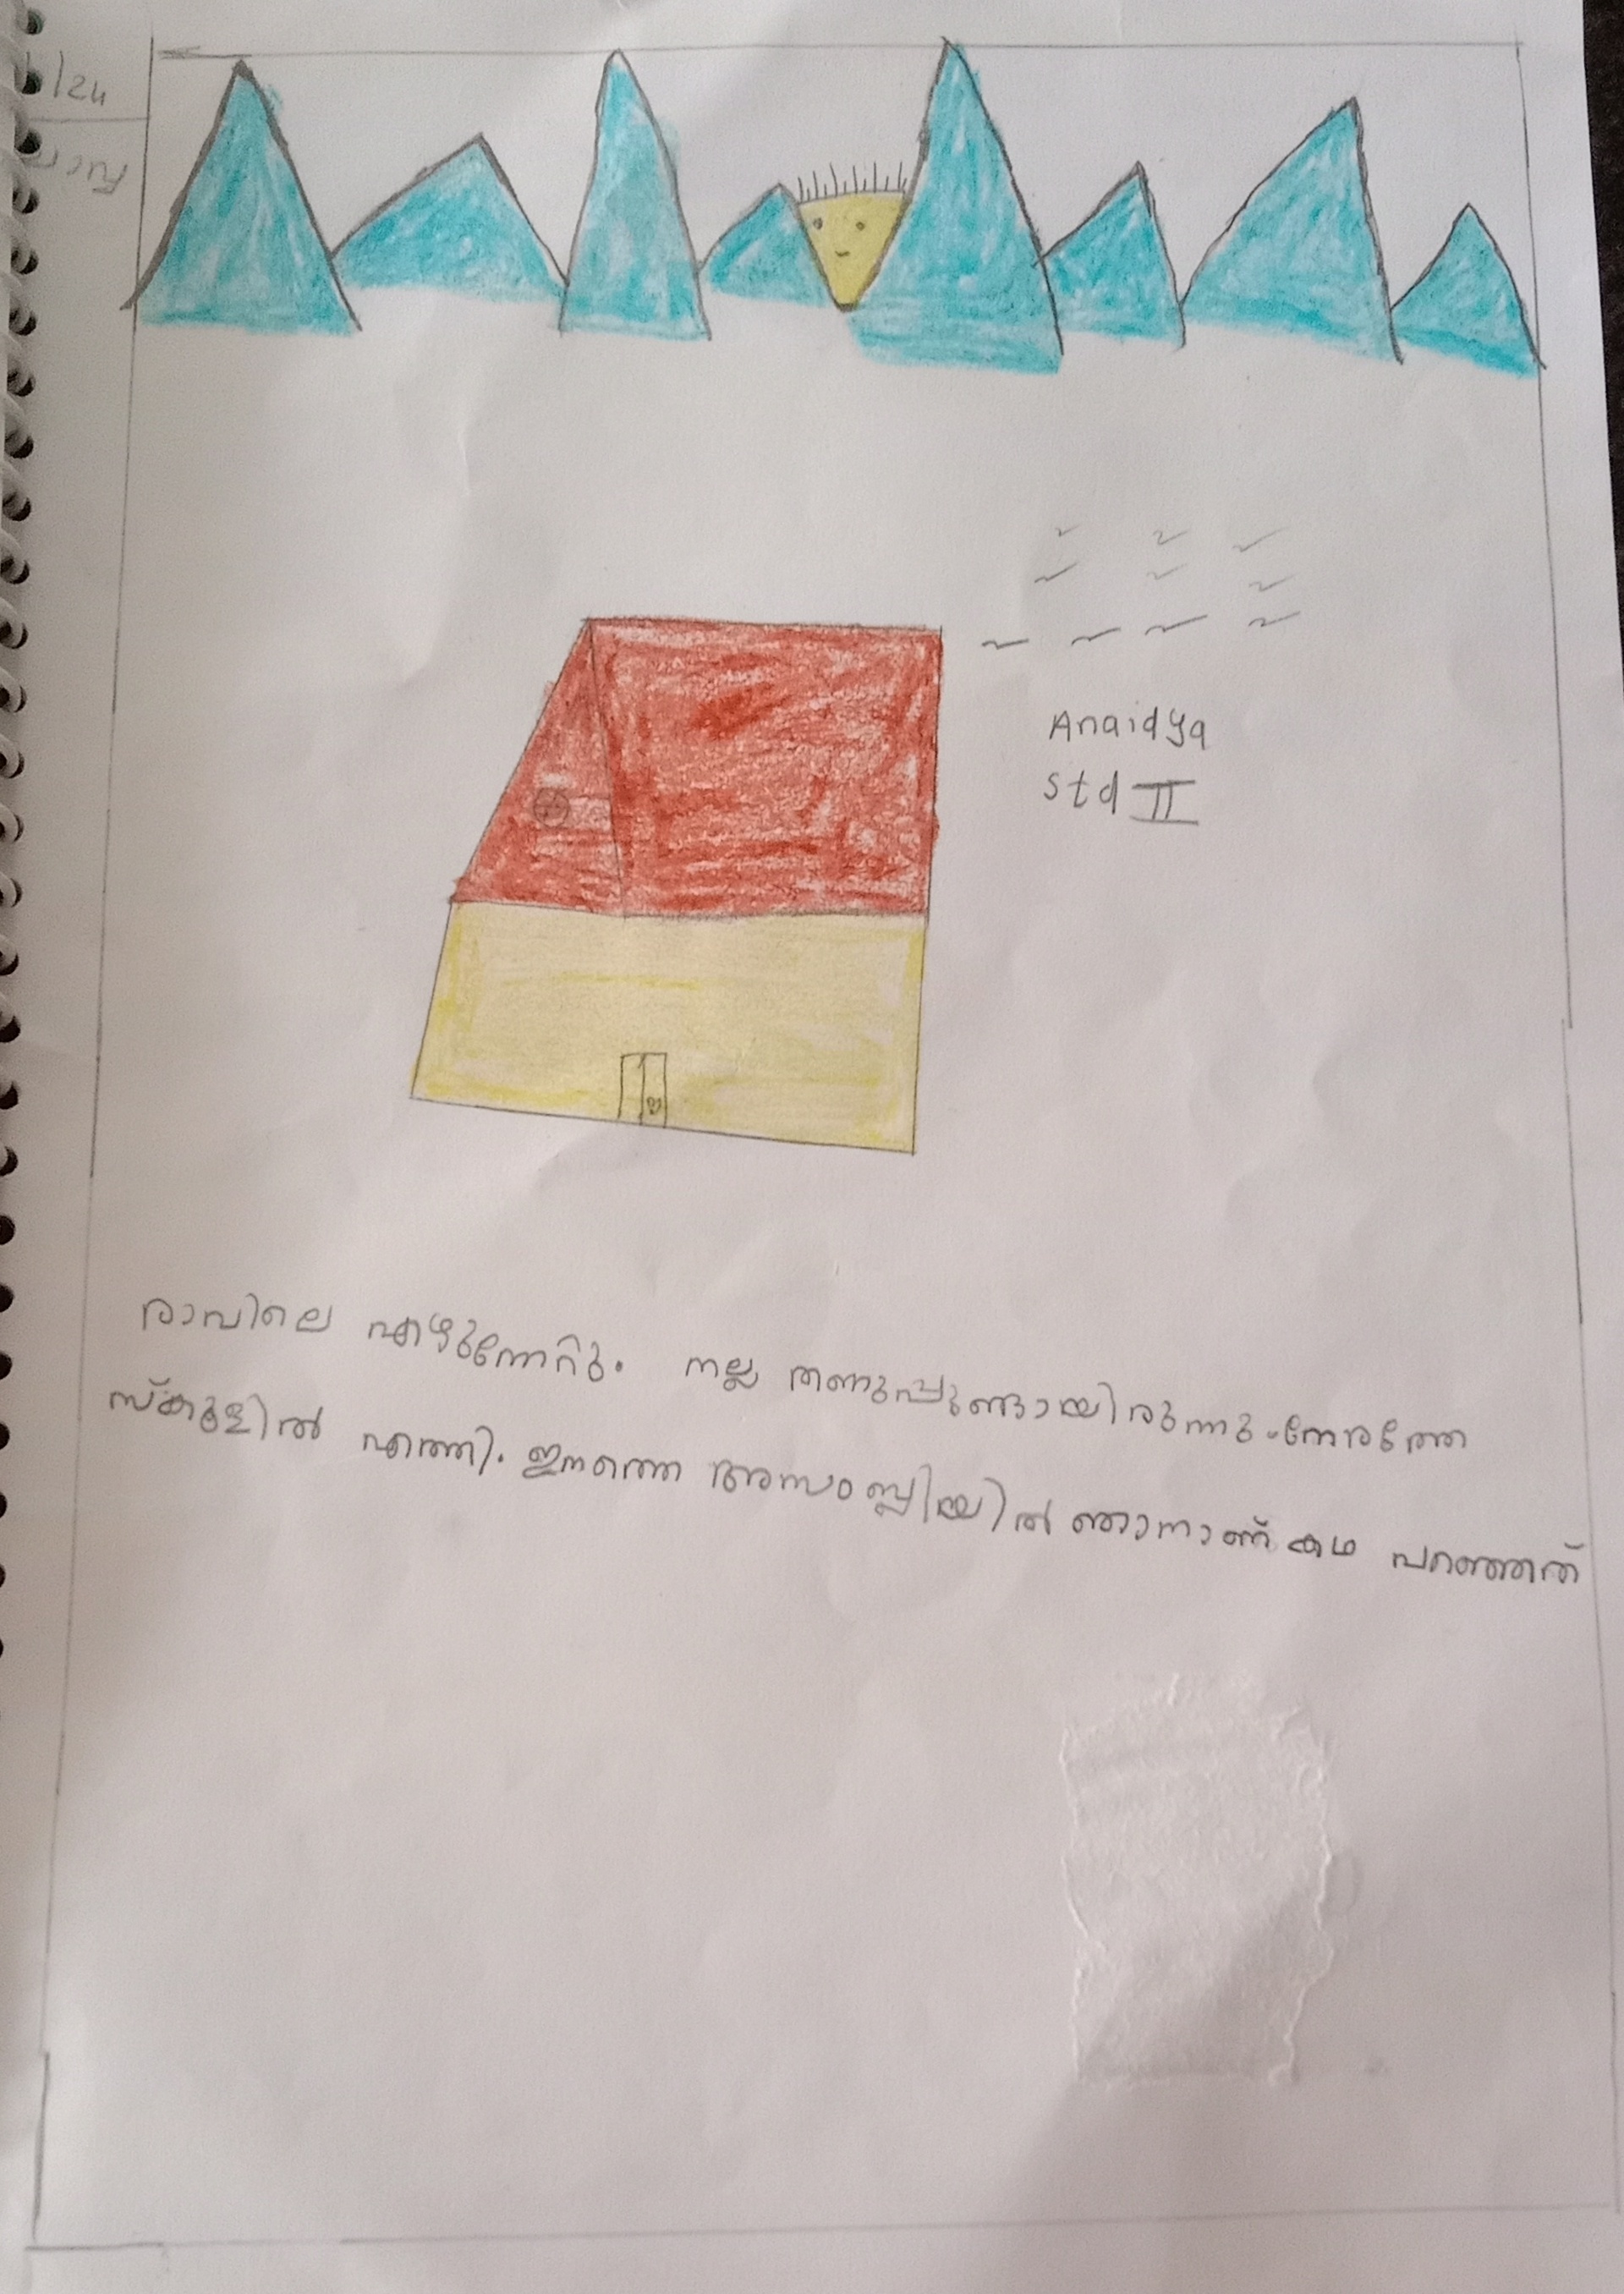 /24
Anaidya
Std II
രാവിലെ എഴുന്നേറ്റു. നല്ല തണുപ്പുണ്ടായിരുന്നു. നേരത്തേ
സ്കൂളിൽ എത്തി. ഇന്നത്തെ അസംബ്ലിയിൽ ഞാനാണ് കഥ പറഞ്ഞത്